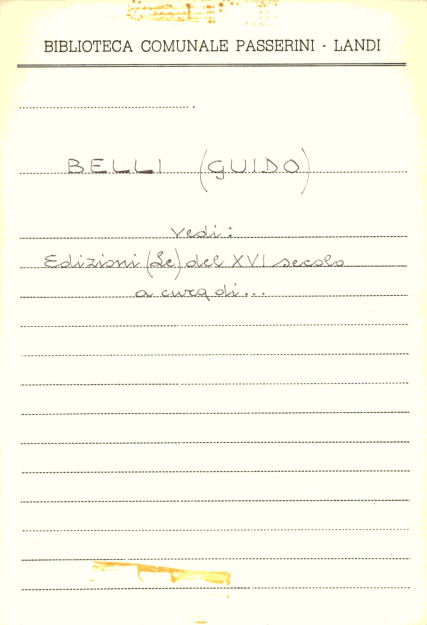 BIBLIOTECA COMUNALE PASSERINI - LANDI
BELLI (GUIDO)
vedi:
Edizioni (Le) del XVI secolo
a cura di...